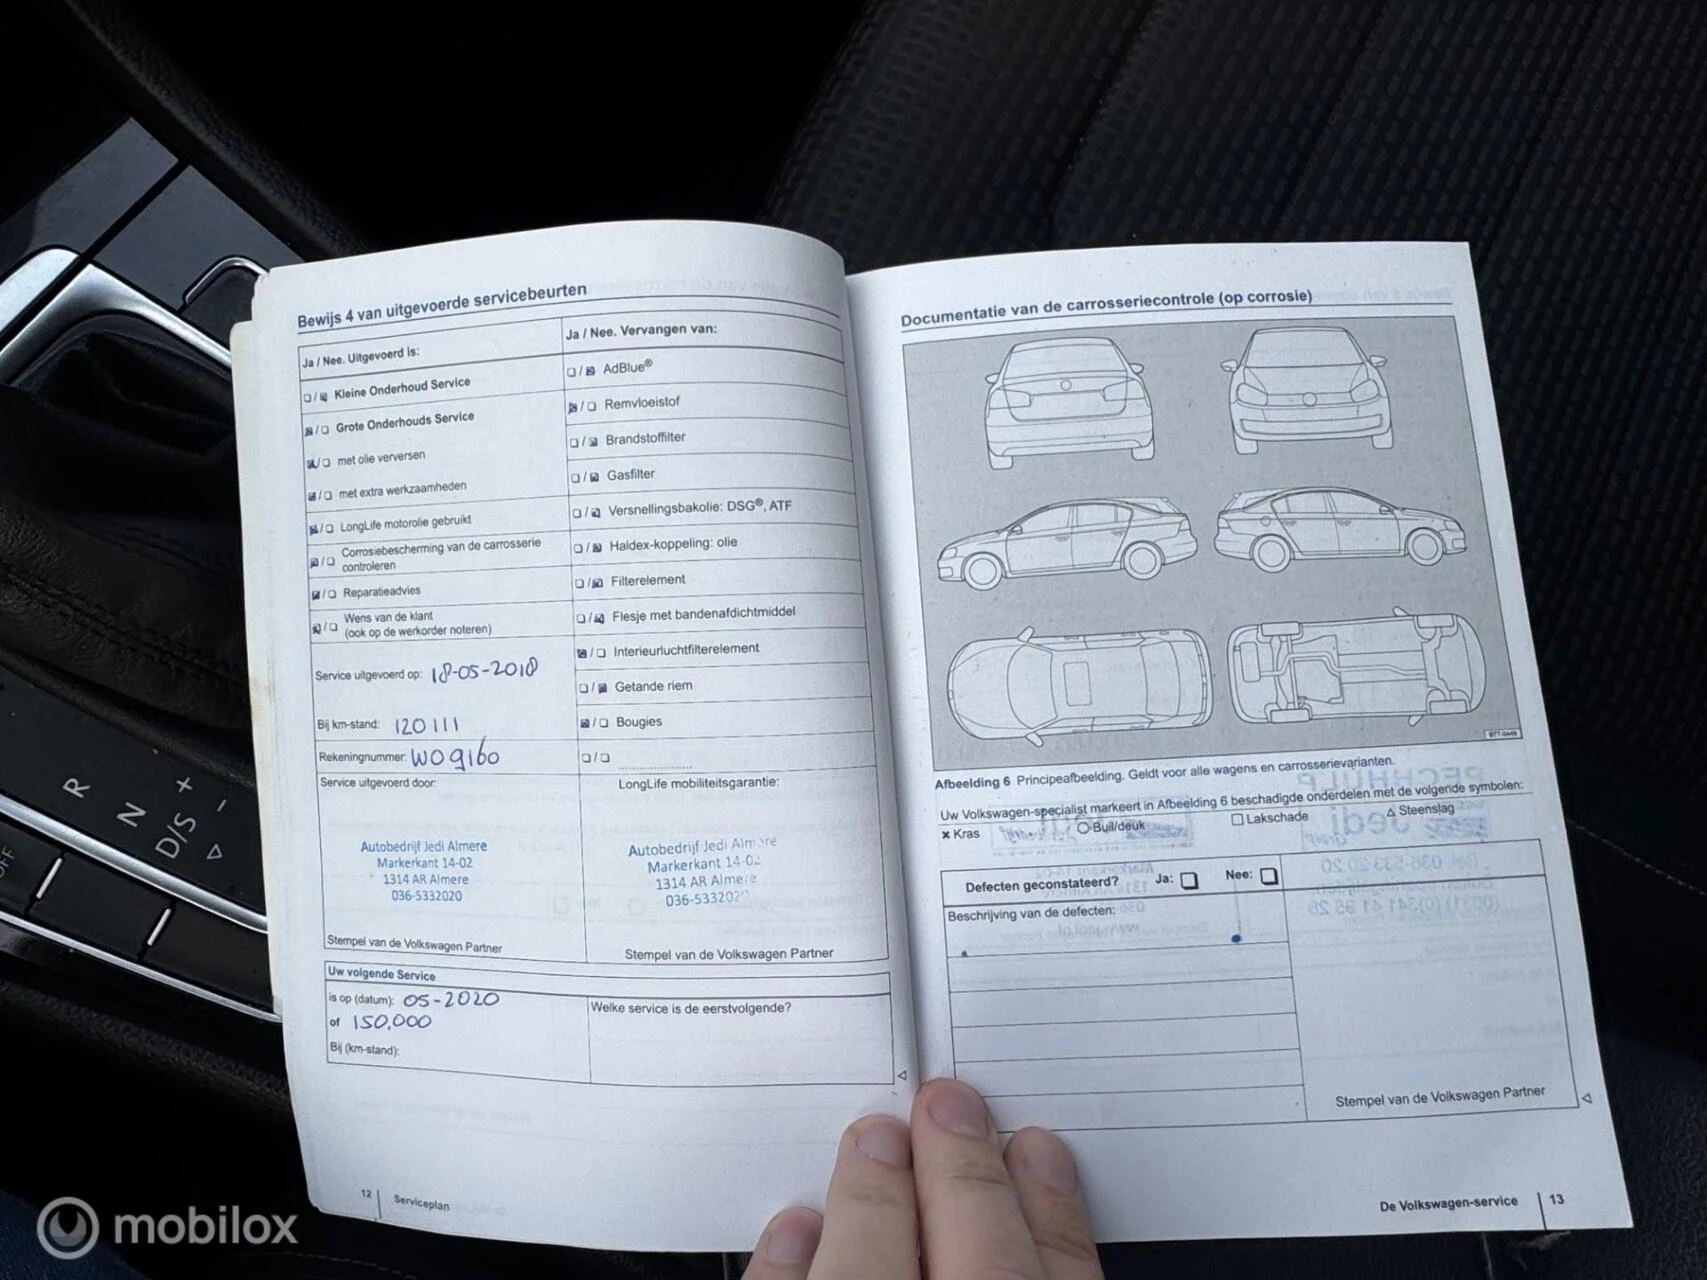 Bewijs 4 van uitgevoerde servicebeurten
Ja / Nee. Uitgevoerd is:
Kleine Onderhoud Service
Grote Onderhouds Service
met olie verversen
met extra werkzaamheden
LongLife motorolie gebruikt
Corrosiebescherming van de carrosserie
controleren
Reparatieadvies
Wens van de klant
(ook op de werkorder noteren)
Service uitgevoerd op: 18-05-2018
Bij km-stand: 120111
Rekeningnummer: WO9160
Service uitgevoerd door:
Autobedrijf Jedi Almere
Markerkant 14-02
1314 AR Almere
036-5332020
Stempel van de Volkswagen Partner
Ja / Nee. Vervangen van:
AdBlue®
Remvloeistof
Brandstoffilter
Gasfilter
Versnellingsbakolie: DSG®, ATF
Haldex-koppeling: olie
Filterelement
Flesje met bandenafdichtmiddel
Interieurluchtfilterelement
Getande riem
Bougies
LongLife mobiliteitsgarantie:
Autobedrijf Jedi Almere
Markerkant 14-02
1314 AR Almere
036-5332020
Stempel van de Volkswagen Partner
Uw volgende Service
is op (datum): 05-2020
of 150.000
Bij (km-stand):
Welke service is de eerstvolgende?
12 Serviceplan
Documentatie van de carrosseriecontrole (op corrosie)
BTT-0449
Afbeelding 6 Principeafbeelding. Geldt voor alle wagens en carrosserievarianten.
Uw Volkswagen-specialist markeert in Afbeelding 6 beschadigde onderdelen met de volgende symbolen:
× Kras ○ Buil/deuk □ Lakschade △ Steenslag
Defecten geconstateerd? Ja: Nee:
Beschrijving van de defecten:
Stempel van de Volkswagen Partner
De Volkswagen-service 13
R
N
D/S
+
-
OFF
mobilox